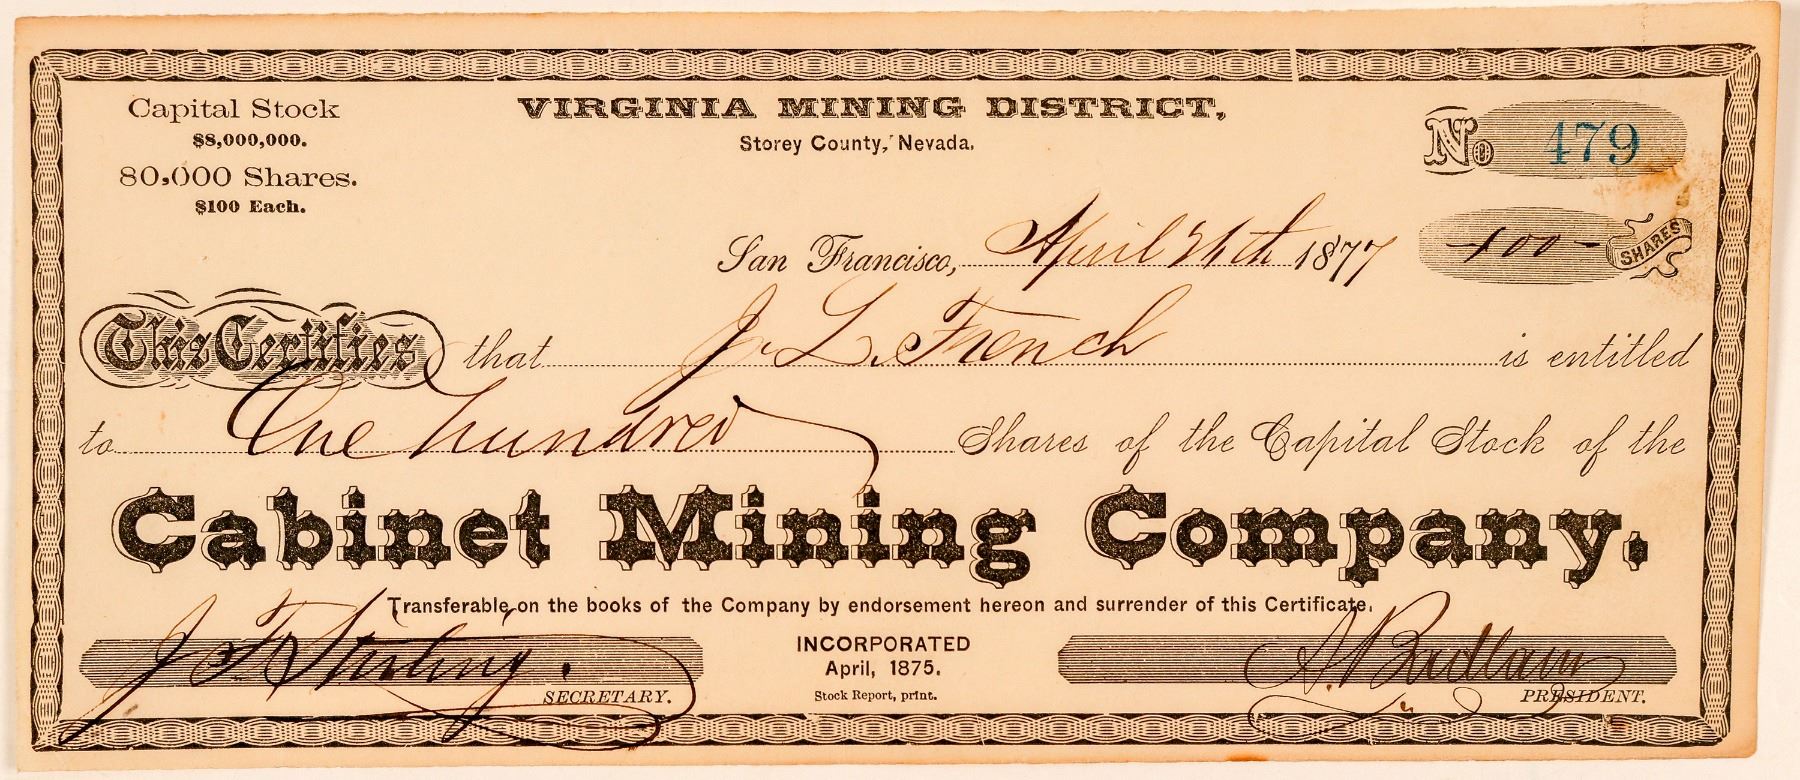 Capital Stock
$8,000,000.
80,000 Shares.
$100 Each.
VIRGINIA MINING DISTRICT,
Storey County, Nevada.
No 479
San Francisco, April 26th 1877
-100- SHARES
This Certifies that J. L. French is entitled
to One hundred Shares of the Capital Stock of the
Cabinet Mining Company.
Transferable on the books of the Company by endorsement hereon and surrender of this Certificate.
J F Stirling.
SECRETARY.
INCORPORATED
April, 1875.
Stock Report, print.
Badlam
PRESIDENT.